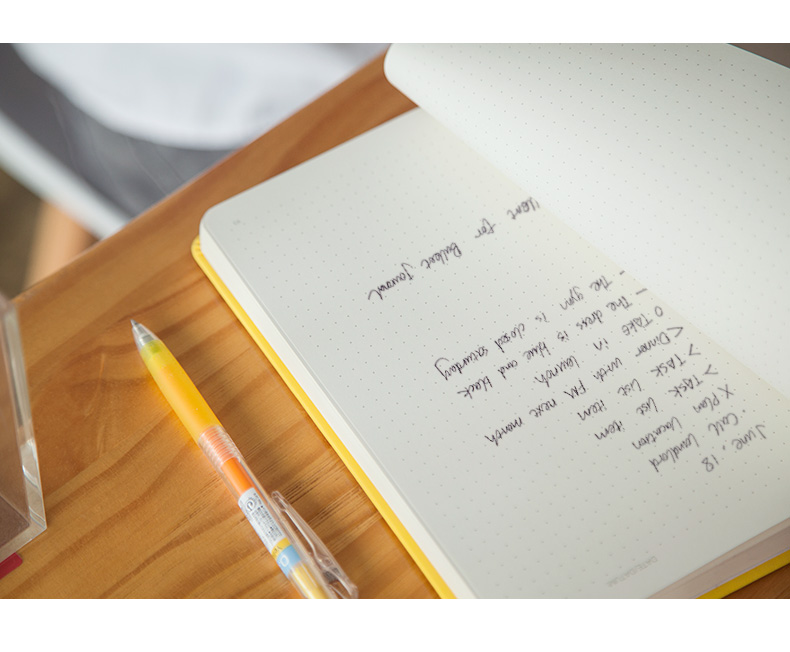 DATE/DATUM:
June, 18
· Call Landlord
X Plan Location
> TASK List item
> TASK List item
< Dinner with FM next month
O TAKE in launch.
— The dress is blue and black
– The gym is closed saturday
for Bullet Journal